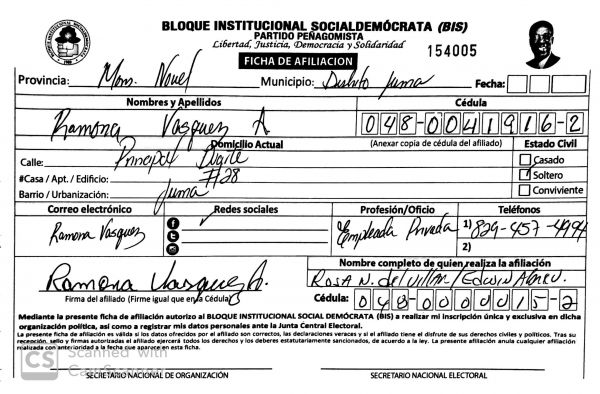 BLOQUE INSTITUCIONAL SOCIALDEMÓCRATA (BIS)
PARTIDO PEÑAGOMISTA
Libertad, Justicia, Democracia y Solidaridad
154005
FICHA DE AFILIACION
Provincia: Mons. Nouel Municipio: Distrito Juma Fecha:
Nombres y Apellidos Cédula
Ramona Vasquez A 048-0041916-2
Domicilio Actual (Anexar copia de cédula del afiliado) Estado Civil
Calle: Principal Casado
#Casa / Apt. / Edificio: #28 Soltero
Barrio / Urbanización: Juma Conviviente
Correo electrónico Redes sociales Profesión/Oficio Teléfonos
Ramona Vasquez Empleada Privada 1) 829-457-4994
2)
Nombre completo de quien realiza la afiliación
Ramona Vasquez A. Rosa N. del Villar / Edwin Abreu.
Firma del afiliado (Firme igual que en la Cédula) Cédula: 048-0000015-2
Mediante la presente ficha de afiliación autorizo al BLOQUE INSTITUCIONAL SOCIAL DEMÓCRATA (BIS) a realizar mi inscripción única y exclusiva en dicha
organización política, así como a registrar mis datos personales ante la Junta Central Electoral.
La presente ficha de afiliación es válida si los datos ofrecidos por el afiliado son correctos, las declaraciones veraces y si el afiliado tiene el disfrute de sus derechos civiles y políticos. Tras su
recepción, sello y firmas autorizadas el afiliado ejercerá todos los derechos y los deberes estatutariamente sancionados, de acuerdo a la ley. La presente afiliación anula cualquier afiliación
realizada con anterioridad a la fecha que aparece en esta ficha.
CS Scanned with
CamScanner
SECRETARIO NACIONAL DE ORGANIZACIÓN SECRETARIO NACIONAL ELECTORAL